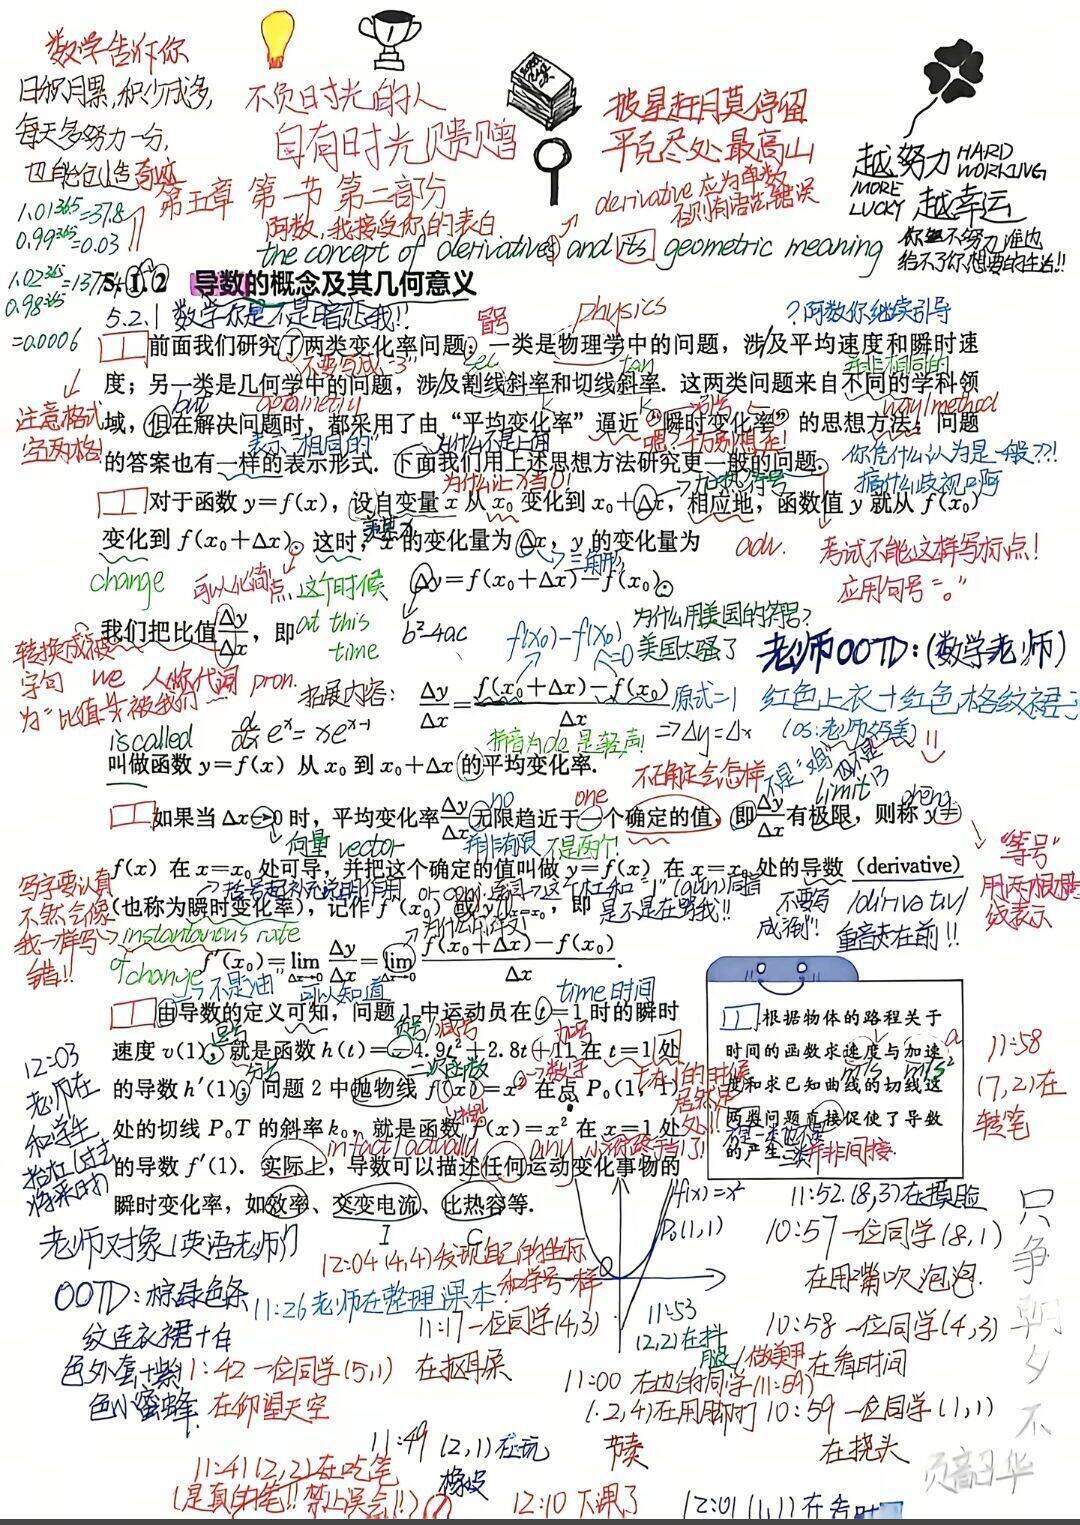 数学告诉你
日积月累,积少成多,
每天多努力一分,
也能创造奇迹
1.01³⁶⁵=37.8
0.99³⁶⁵=0.03
0.98³⁶⁵
=0.0006
不负时光的人
自有时光馈赠
披星赶月莫停留
平克尽处最高山
越努力 HARD WORKING,
MORE LUCKY 越幸运
你不努力谁也
给不了你想要的生活!!
第五章 第一节 第二部分
阿数,我接受你的表白.
derivative应为单数
否则有语法错误
the concept of derivatives and its geometric meaning
5.1.2 导数的概念及其几何意义
5.2.1 数学你是不是暗恋我!!
冒号
physics
?阿数你继续引导
前面我们研究了两类变化率问题:一类是物理学中的问题,涉及平均速度和瞬时速
不要写成"3"
sec
tan
并非相同的
度;另一类是几何学中的问题,涉及割线斜率和切线斜率.这两类问题来自不同的学科领
注意格式
空两格!
but
geometry
引号
way/method
域,但在解决问题时,都采用了由“平均变化率”逼近“瞬时变化率”的思想方法;问题
表示"相同的"
为什么不是上面
的答案也有一样的表示形式.下面我们用上述思想方法研究更一般的问题.
你凭什么认为是一般??!
搞什么歧视口阿
为什么让x当0!
对于函数 y=f(x),设自变量 x 从 x₀ 变化到 x₀+Δx,相应地,函数值 y 就从 f(x₀)
变化到 f(x₀+Δx).这时,x 的变化量为 Δx,y 的变化量为
adv.
考试不能这样写标点!
应用句号"。"
change
可以化简
点
这个时候
三角形
Δy=f(x₀+Δx)-f(x₀).
at this
time
b²-4ac
f(x₀)-f(x₀)
=0
为什么用美国的符号?
美国太骚了
我们把比值 Δy/Δx,即
转换成被
字句
we 人称代词 pron.
为"比值被我们…
老师OOTD:(数学老师)
红色上衣+红色格纹裙子
(os:老师好美)
拓展内容:
Δy/Δx=(f(x₀+Δx)-f(x₀))/Δx
原式=1
⇒Δy=Δx
is called
d/dx eˣ=xeˣ⁻¹
拼音为de 是轻声!
叫做函数 y=f(x) 从 x₀ 到 x₀+Δx 的平均变化率.
不确定会怎样
limit
no
one
如果当 Δx→0 时,平均变化率 Δy/Δx 无限趋近于一个确定的值,即 Δy/Δx 有极限,则称 y=
向量 vector
并非有限
不是两个!
"等号"
用两根横
线表示
f(x) 在 x=x₀ 处可导,并把这个确定的值叫做 y=f(x) 在 x=x₀ 处的导数 (derivative)
写字要认真
不然会像
我一样写
错!!
括号起补充说明作用
or conj.连词
(也称为瞬时变化率),记作 f′(x₀) 或 y′|x=x₀,即
是不是在骂我!!
不要写
成"倒"!
重音在前!!
instantaneous rate
of change
f′(x₀)=lim Δx→0 Δy/Δx=lim Δx→0 (f(x₀+Δx)-f(x₀))/Δx.
不是"油"
可以知道
time时间
由导数的定义可知,问题 1 中运动员在 t=1 时的瞬时
逗号
负号/减号
加号
速度 v(1),就是函数 h(t)=-4.9t²+2.8t+11 在 t=1 处
分号
二次函数
数字
的导数 h′(1);问题 2 中抛物线 f(x)=x² 在点 P₀(1,1)
处的切线 P₀T 的斜率 k₀,就是函数 f(x)=x² 在 x=1 处
in fact/actually
any
的导数 f′(1).实际上,导数可以描述任何运动变化事物的
瞬时变化率,如效率、交变电流、比热容等.
I
C
根据物体的路程关于
时间的函数求速度与加速
m/s
m/s²
a
度和求已知曲线的切线这
两类问题直接促使了导数
的产生.
并非间接.
11:58
(7,2)在
转笔
12:03
老师在
和学生
抬杠(过去
将来时)
老师对象(英语老师)
OOTD:棕绿色条
纹连衣裙+白
色外套+紫
色小蜜蜂
f(x)=x²
P₀(1,1)
12:04(4,4)发现自己的坐标
和学号一样
11:26老师在整理课本
11:17一位同学(4,3)
在抠耳屎
11:42 一位同学(5,1)
在仰望天空
11:52(8,3)在摸脸
10:57一位同学(8,1)
在用嘴吹泡泡.
11:53
(2,2)在抖
腿
10:58 一位同学(4,3)
在看时间
11:00 在边住的同学(11:59)
做美甲
(.2,4)在用脚打
节奏
10:59 一位同学(1,1)
在挠头
11:49 (2,1)在玩
橡皮
11:41(2,2)在吃笔
(是真的笔!!禁止误会!!)
12:10 下课了
12:01(1,1)在看时
只争朝夕不
负韶华